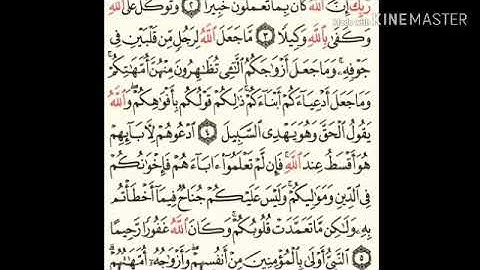 رَبِّكَ إِنَّ ٱللَّهَ كَانَ بِمَا تَعْمَلُونَ خَبِيرًا ٢ وَتَوَكَّلْ عَلَى ٱللَّهِ
made with KINEMASTER
وَكَفَىٰ بِٱللَّهِ وَكِيلًا ٣ مَّا جَعَلَ ٱللَّهُ لِرَجُلٍ مِّن قَلْبَيْنِ فِي
جَوْفِهِۦ وَمَا جَعَلَ أَزْوَٰجَكُمُ ٱلَّٰٓـِٔي تُظَٰهِرُونَ مِنْهُنَّ أُمَّهَٰتِكُمْ
وَمَا جَعَلَ أَدْعِيَآءَكُمْ أَبْنَآءَكُمْ ذَٰلِكُمْ قَوْلُكُم بِأَفْوَٰهِكُمْ وَٱللَّهُ
يَقُولُ ٱلْحَقَّ وَهُوَ يَهْدِي ٱلسَّبِيلَ ٤ ٱدْعُوهُمْ لِأٓبَآئِهِمْ
هُوَ أَقْسَطُ عِندَ ٱللَّهِ فَإِن لَّمْ تَعْلَمُوٓا۟ ءَابَآءَهُمْ فَإِخْوَٰنُكُمْ
فِي ٱلدِّينِ وَمَوَٰلِيكُمْ وَلَيْسَ عَلَيْكُمْ جُنَاحٌ فِيمَآ أَخْطَأْتُم
بِهِۦ وَلَٰكِن مَّا تَعَمَّدَتْ قُلُوبُكُمْ وَكَانَ ٱللَّهُ غَفُورًا رَّحِيمًا
٥ ٱلنَّبِيُّ أَوْلَىٰ بِٱلْمُؤْمِنِينَ مِنْ أَنفُسِهِمْ وَأَزْوَٰجُهُۥٓ أُمَّهَٰتُهُمْ